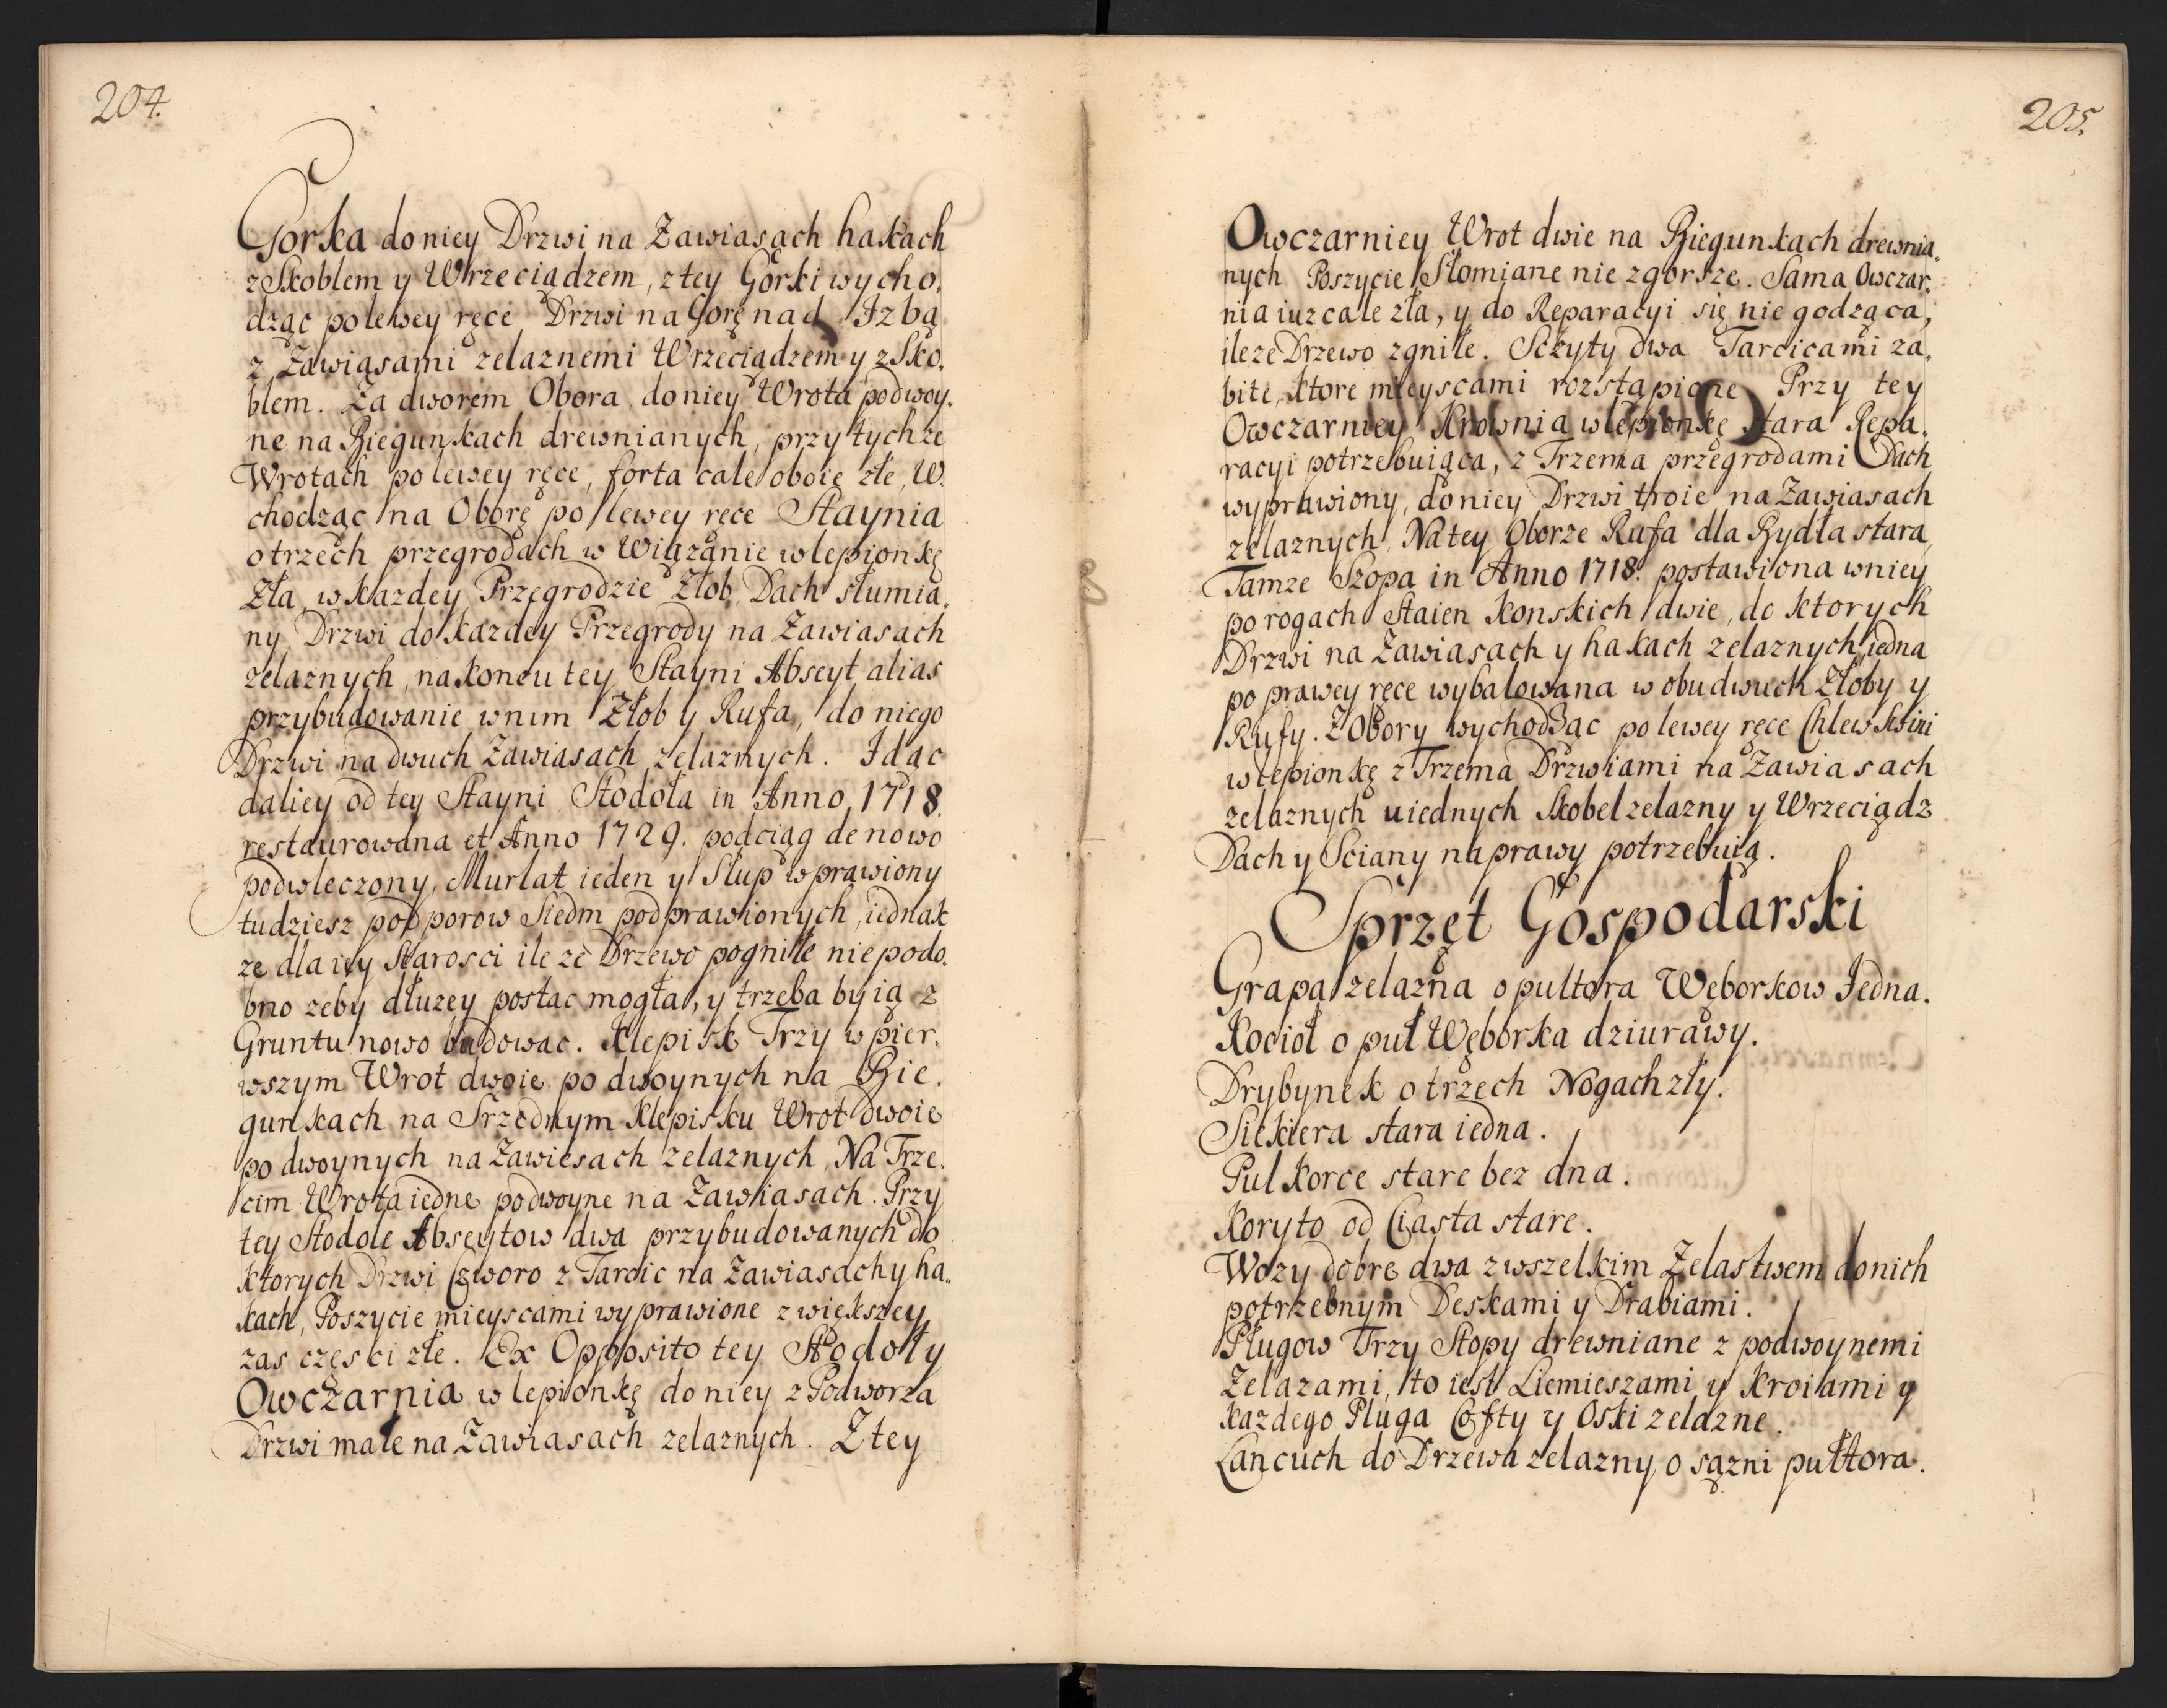 204.
Gorka do niey Drzwi na Zawiasach hakach
z Skoblem y Wrzeciądzem, z tey Gorki wycho„
dząc po lewey ręce Drzwi na Gorę nad Izbą
z Zawiasami zelaznemi Wrzeciądzem y z Sko„
blem. Za dworem Obora, do niey Wrota podwoy„
ne na Biegunkach drewnianych, przy tychze
Wrotach po lewey ręce, forta cale oboie złe, W„
chodząc na Oborę po lewey ręce Staynia
o trzech przegrodach w Wiązanie w lepionkę
Zła, w kazdey Przegrodzie Złob, Dach słumia„
ny, Drzwi do kazdey Przegrody na Zawiasach
zelaznych, na koncu tey Stayni Abseyt alias
przybudowanie w nim Złob y Rufa, do niego
Drzwi na dwuch Zawiasach zelaznych. Idąc
daliey od tey Stayni Stodoła in Anno 1718.
restaurowana et Anno 1729. podciąg de novo
podwleczony, Murłat ieden y Słup wprawiony
tudziesz podporow Siedm podprawionych, iednak
ze dla iey Starosci ile ze Drzewo pogniłe nie podo„
bno zeby dłuzey postac mogła, y trzeba by ią z
Gruntu nowo budowac. Klepisk Trzy w pier„
wszym Wrot dwoie podwoynych na Bie„
gunkach na Srzednym Klepisku Wrot dwoie
podwoynych na Zawiesach zelaznych, Na Trze„
cim Wrota iedne podwoyne na Zawiasach. Przy
tey Stodole Abseytow dwa przybudowanych do
ktorych Drzwi Czworo z Tarcic na Zawiasach y ha„
kach, Poszycie mieyscami wyprawione z większey
zas częsci złe. Ex Opposito tey Stodoły
Owczarnia w lepionkę do niey z Podworza
Drzwi małe na Zawiasach zelaznych. Z tey
205.
Owczarniey Wrot dwie na Biegunkach drewnia„
nych Poszycie Słomiane nie zgorsze. Sama Owczar„
nia iuz cale zła, y do Reparacyi się nie godząca,
ile ze Drzewo zgniłe. Sczyty dwa Tarcicami za„
bite, ktore mieyscami rozstąpione Przy tey
Owczarniey Krownia w lepionkę stara Repa„
racyi potrzebuiąca, z Trzema przegrodami Dach
wyprawiony, do niey Drzwi troie na Zawiasach
zelaznych, Na tey Oborze Rufa dla Bydła stara,
Tamze Szopa in Anno 1718. postawiona w niey
po rogach Staien konskich dwie, do ktorych
Drzwi na Zawiasach y hakach zelaznych, iedna
po prawey ręce wybalowana w obudwuch Złoby y
Rufy. Z Obory wychodząc po lewey ręce Chlew Swini
w lepionkę z Trzema Drzwiami na Zawiasach
zelaznych u iednych Skobel zelazny y Wrzeciądz
Dach y Sciany naprawy potrzebuią.
Sprzęt Gospodarski
Grapa zelazna o pultora Węborkow Jedna.
Kocioł o puł Węborka dziurawy.
Drybynek o trzech Nogach zły.
Siekiera stara iedna.
Pul korce stare bez dna.
Koryto od Ciasta stare.
Wozy dobre dwa z wszelkim Zelastwem do nich
potrzebnym Deskami y Drabiami.
Pługow Trzy Stopy drewniane z podwoynemi
Zelazami, to iest Liemieszami y kroiami y
kazdego Pługa Cofty y Oski zelazne.
Łancuch do Drzewa zelazny o sązni pułtora.